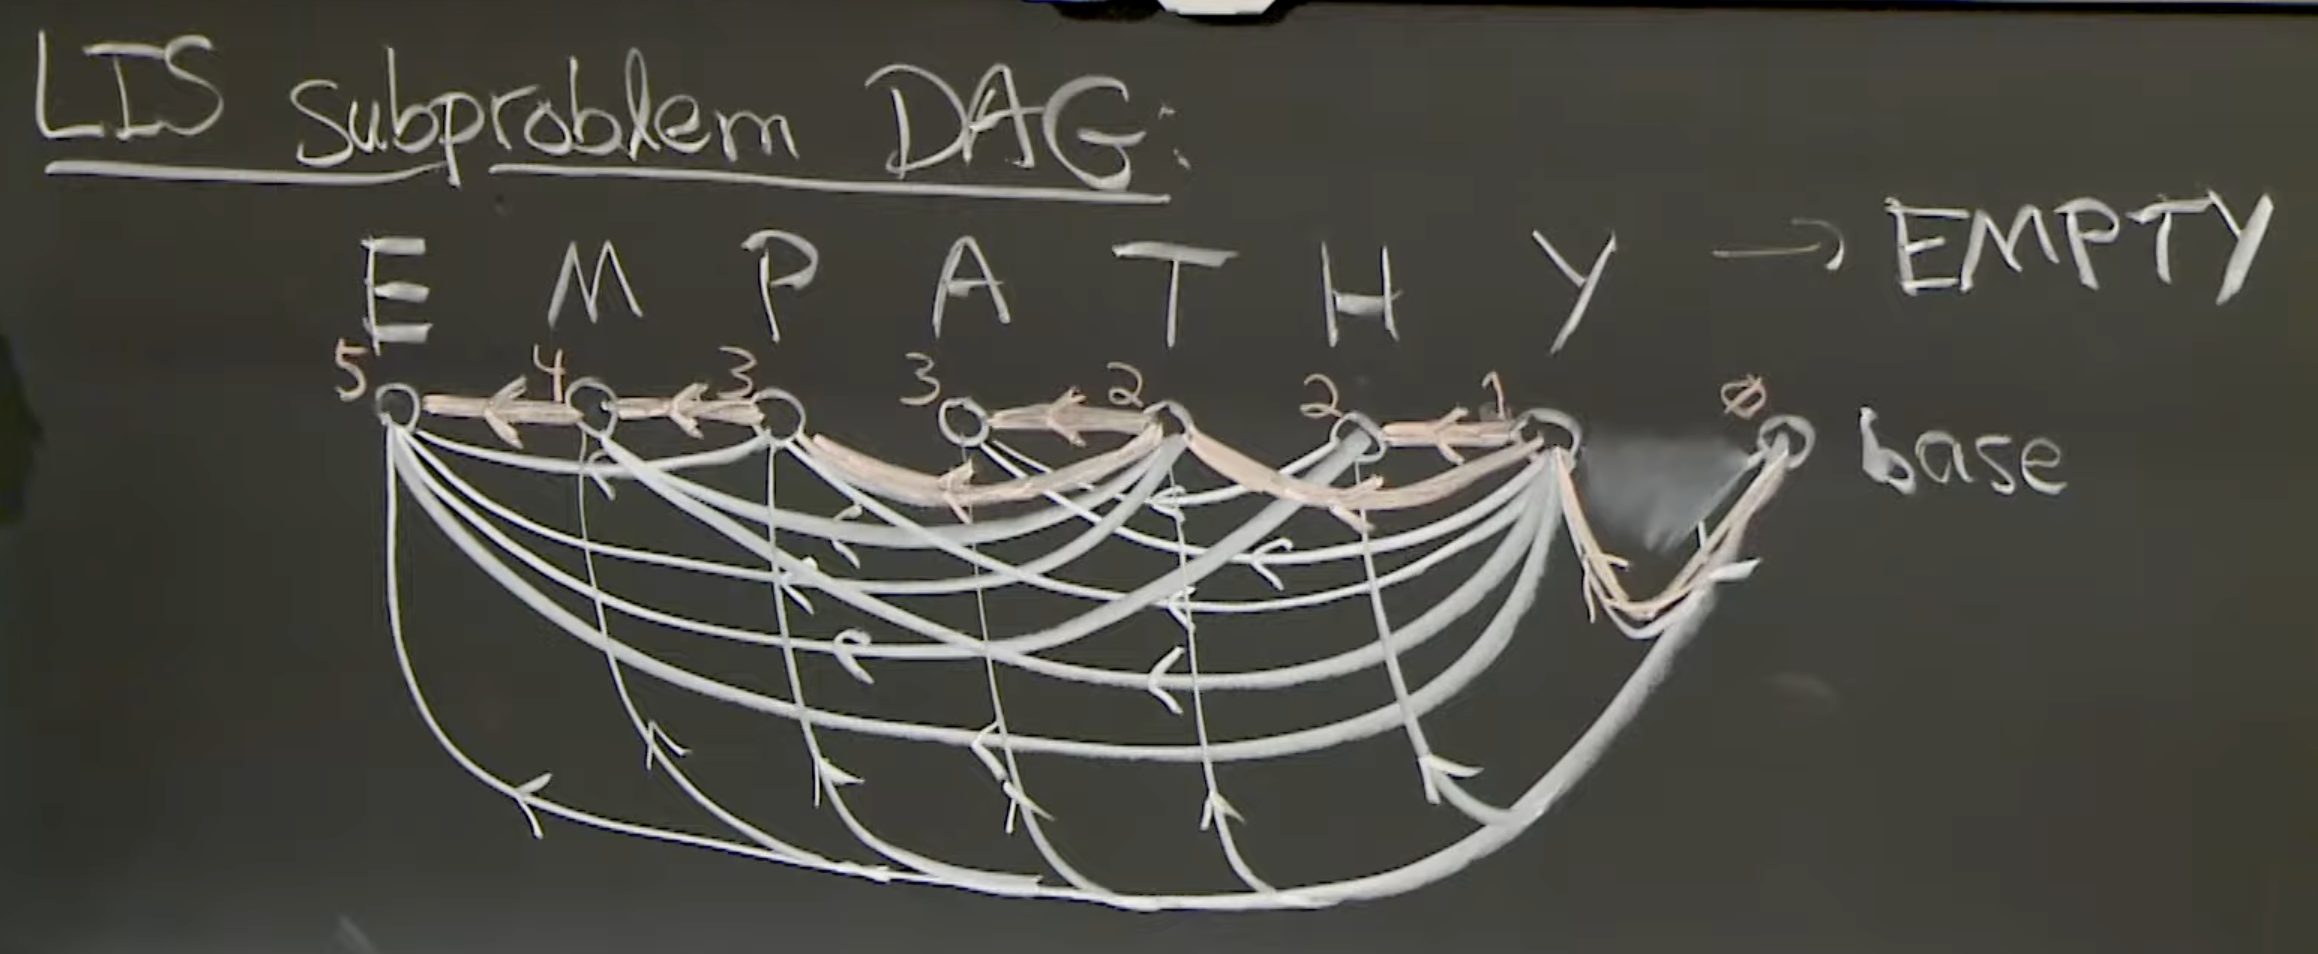 LIS subproblem DAG:
E M P A T H Y → EMPTY
5 4 3 3 2 2 1 0 base